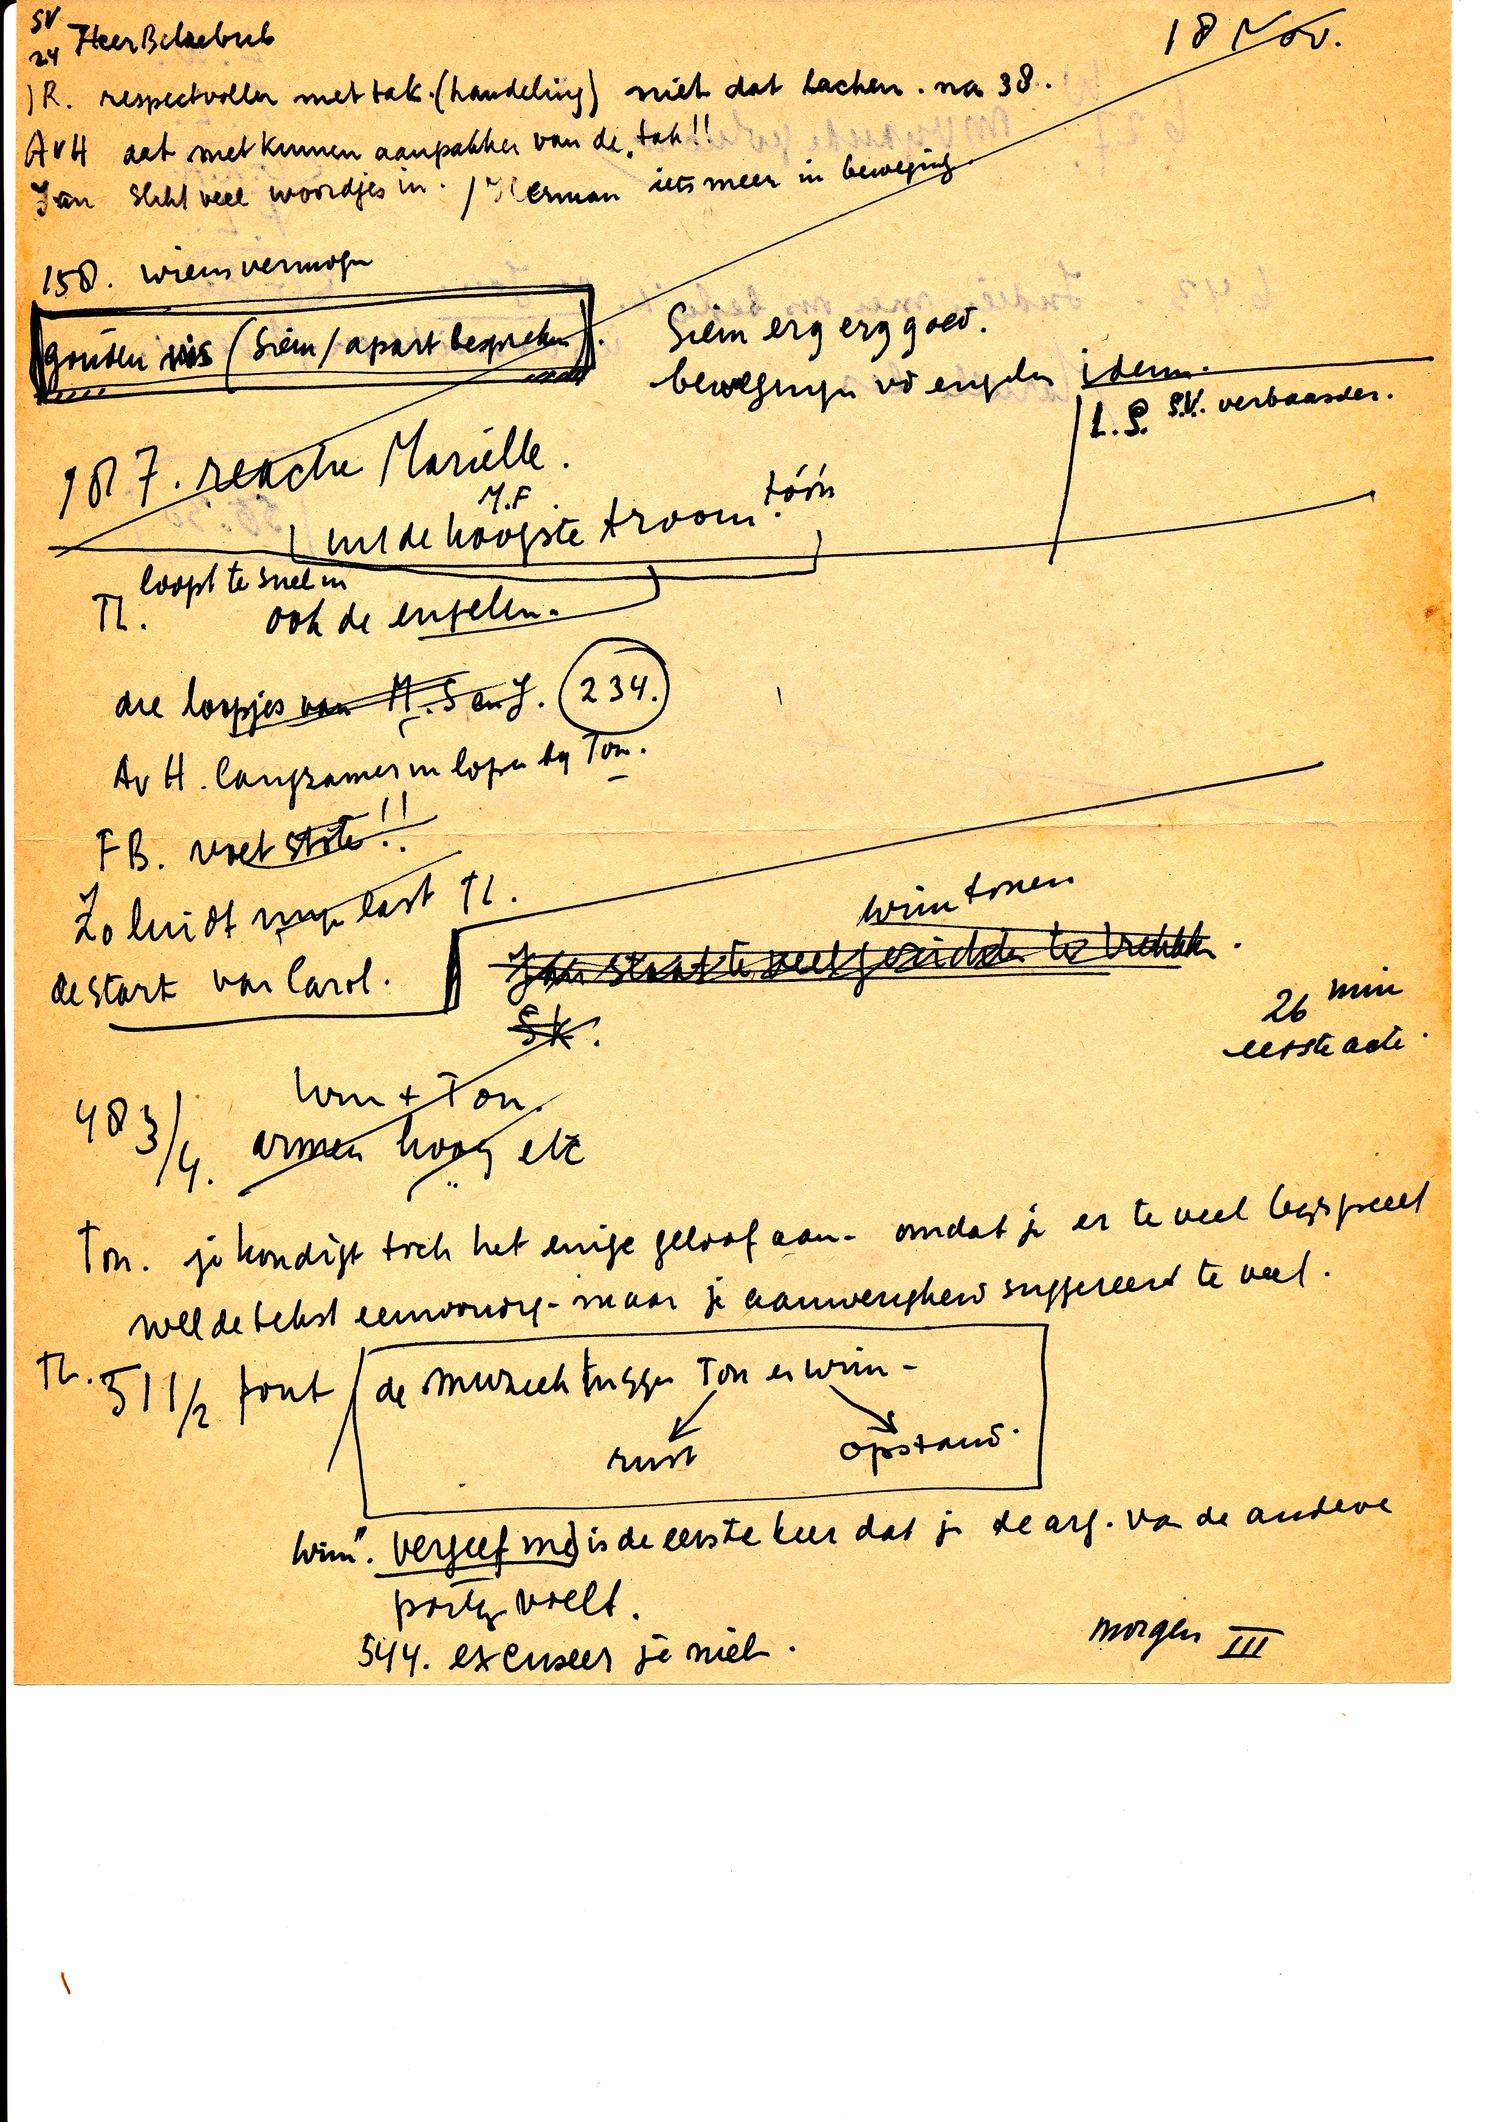 SV
24 Heer Belzebub
18 Nov.
JR. respectvoller met tak. (handeling) niet dat lachen. na 38.
AvH dat niet kunnen aanpakken van de tak!!
Jan slikt veel woordjes in. / Herman iets meer in beweging
158. wiens vermogen
gouden (Siem / apart bespreken).
Siem erg erg goed.
bewegingen vd engelen idem.
L.S. S.V. verbaasder.
187. reactie Mariëlle.
M.F. tóón
uit de hoogste troon.
TL. loopt te snel in
ook de engelen.
die loopjes van M. S en J. 234.
AvH. langzamer in lopen bij Ton.
FB. voet stoten!!
Zo luidt mijn last TL.
de start van Carol.
Wim tonen
Jan staat te veel gezichten te trekken.
SK.
26 min
eerste acte.
483/4. Wim + Ton.
armen hoog etc
Ton. je kondigt toch het enige geloof aan - omdat je er te veel bijspeelt
de tekst eenvoudig - maar je aanwezigheid suggereert te veel.
TL. 511/2 fout / de muziek tussen Ton en Wim -
rust opstand.
Wim". vergeef mij is de eerste keer dat je de arg. van de andere
partij voelt.
544. excuseer je niet.
morgen III